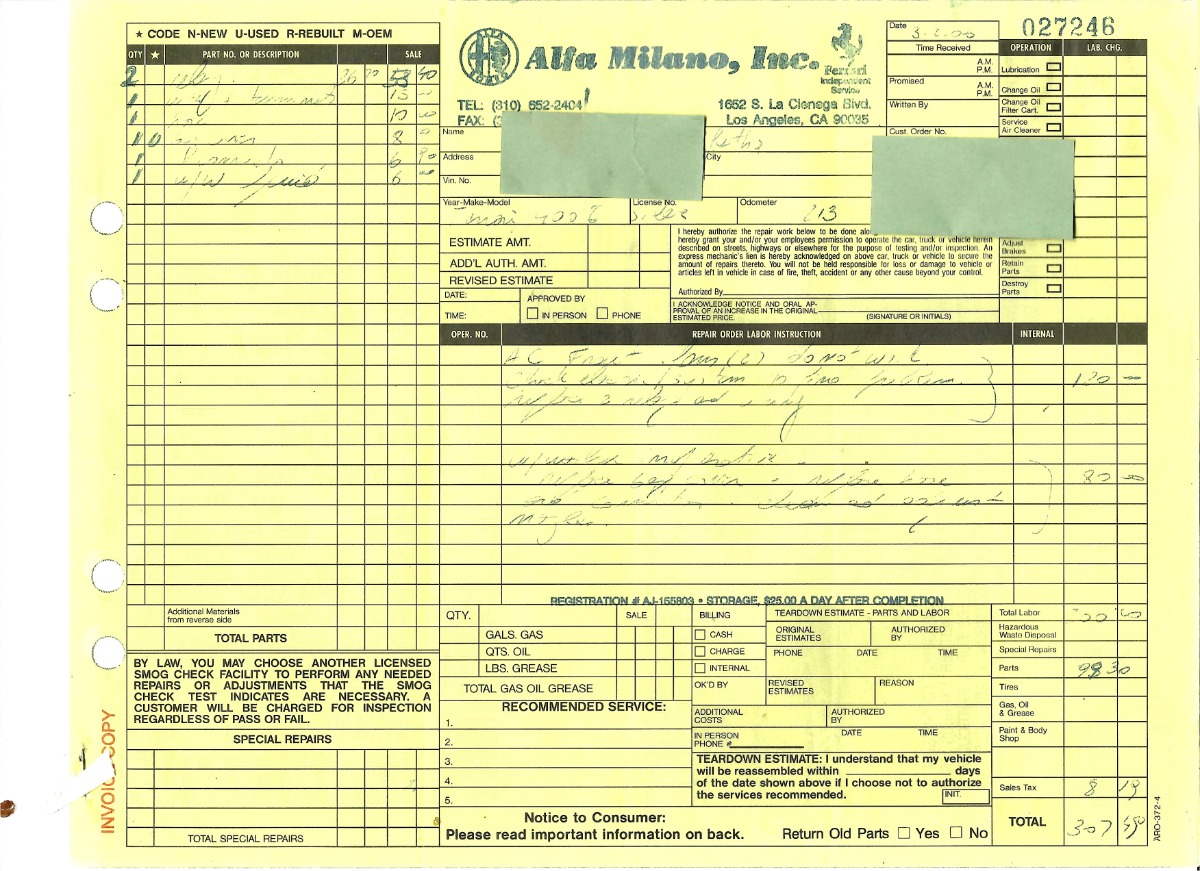 ★ CODE N-NEW U-USED R-REBUILT M-OEM
QTY ★ PART NO. OR DESCRIPTION SALE
2 26 70 53 40
1 15
1 10
1 8
1 6 90
1 w/w 6
Additional Materials
from reverse side
TOTAL PARTS
BY LAW, YOU MAY CHOOSE ANOTHER LICENSED
SMOG CHECK FACILITY TO PERFORM ANY NEEDED
REPAIRS OR ADJUSTMENTS THAT THE SMOG
CHECK TEST INDICATES ARE NECESSARY. A
CUSTOMER WILL BE CHARGED FOR INSPECTION
REGARDLESS OF PASS OR FAIL.
SPECIAL REPAIRS
TOTAL SPECIAL REPAIRS
INVOICE COPY
ALFA ROMEO
Alfa Milano, Inc.
Ferrari
Independent
Service
TEL: (310) 652-2404
FAX: (3
1652 S. La Cienega Blvd.
Los Angeles, CA 90035
Name
Address
City
Vin. No.
Year-Make-Model
License No.
Odometer 213
Date 3-2-00
Time Received
A.M.
P.M.
Promised
A.M.
P.M.
Written By
Cust. Order No.
027246
OPERATION LAB. CHG.
Lubrication
Change Oil
Change Oil
Filter Cart.
Service
Air Cleaner
Adjust
Brakes
Retain
Parts
Destroy
Parts
ESTIMATE AMT.
ADD'L AUTH. AMT.
REVISED ESTIMATE
DATE:
TIME:
APPROVED BY
IN PERSON PHONE
I hereby authorize the repair work below to be done alo
hereby grant your and/or your employees permission to operate the car, truck or vehicle herein
described on streets, highways or elsewhere for the purpose of testing and/or inspection. An
express mechanic's lien is hereby acknowledged on above car, truck or vehicle to secure the
amount of repairs thereto. You will not be held responsible for loss or damage to vehicle or
articles left in vehicle in case of fire, theft, accident or any other cause beyond your control.
Authorized By
I ACKNOWLEDGE NOTICE AND ORAL AP-
PROVAL OF AN INCREASE IN THE ORIGINAL
ESTIMATED PRICE.
(SIGNATURE OR INITIALS)
OPER. NO. REPAIR ORDER LABOR INSTRUCTION INTERNAL
AC
to find problem 120
80
REGISTRATION # AJ-155803 • STORAGE, $25.00 A DAY AFTER COMPLETION
QTY. SALE
GALS. GAS
QTS. OIL
LBS. GREASE
TOTAL GAS OIL GREASE
RECOMMENDED SERVICE:
1.
2.
3.
4.
5.
BILLING
CASH
CHARGE
INTERNAL
OK'D BY
TEARDOWN ESTIMATE - PARTS AND LABOR
ORIGINAL
ESTIMATES
AUTHORIZED
BY
PHONE DATE TIME
REVISED
ESTIMATES
REASON
ADDITIONAL
COSTS
AUTHORIZED
BY
IN PERSON
PHONE #
DATE TIME
TEARDOWN ESTIMATE: I understand that my vehicle
will be reassembled within days
of the date shown above if I choose not to authorize
the services recommended.
INIT.
Notice to Consumer:
Please read important information on back.
Return Old Parts Yes No
Total Labor
Hazardous
Waste Disposal
Special Repairs
Parts 98 30
Tires
Gas, Oil
& Grease
Paint & Body
Shop
Sales Tax 8 19
TOTAL 307
ARO-372-4